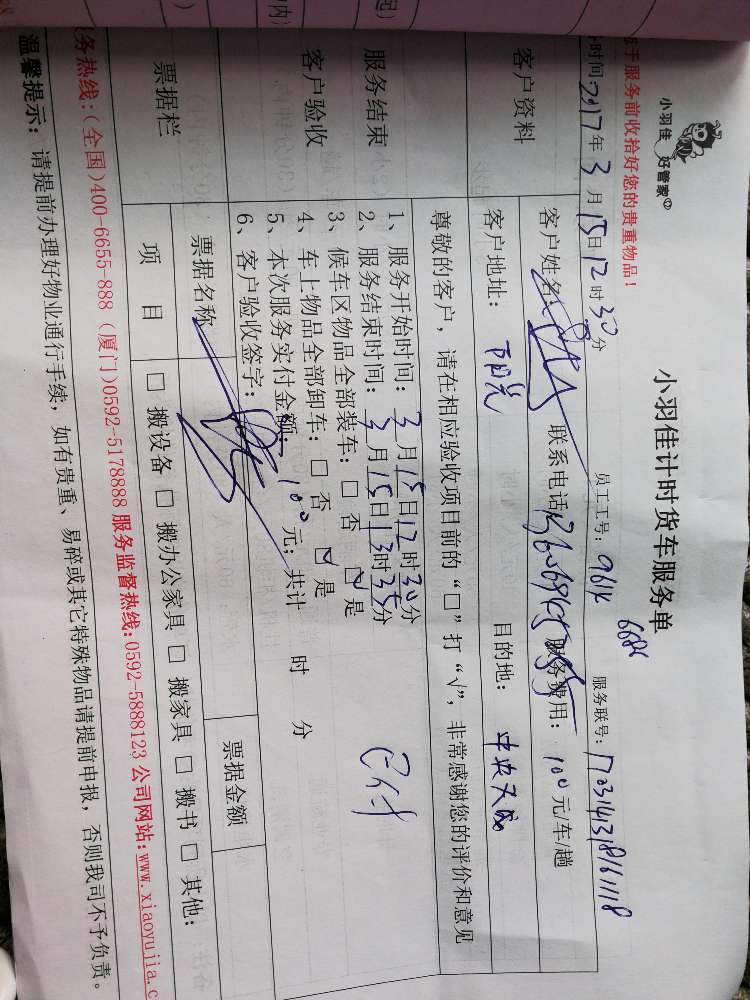 小羽佳 好管家
小羽佳计时货车服务单
于服务前收拾好您的贵重物品！
时间：2017年3月15日12时30分
员工工号：9614
6686
服务联号：
客户资料
客户姓名
联系电话
服务费用：100元/车/趟
客户地址：
目的地：中央天成
尊敬的客户，请在相应验收项目前的“□”打“√”，非常感谢您的评价和意见
服务结束
客户验收
1、服务开始时间：3月15日12时30分
2、服务结束时间：3月15日13时35分
3、候车区物品全部装车：□否 ☑是
4、车上物品全部卸车：□否 ☑是
5、本次服务实付金额：100元；共计 时 分
6、客户验收签字：
已付
票据栏
票据名称
票据金额
项目
□搬设备 □搬办公家具 □搬家具 □搬书 □其他：
务热线：（全国）400-6655-888（厦门）0592-5178888 服务监督热线：0592-5888123 公司网站：www.xiaoyujia.c
温馨提示：请提前办理好物业通行手续，如有贵重、易碎或其它特殊物品请提前申报，否则我司不予负责。